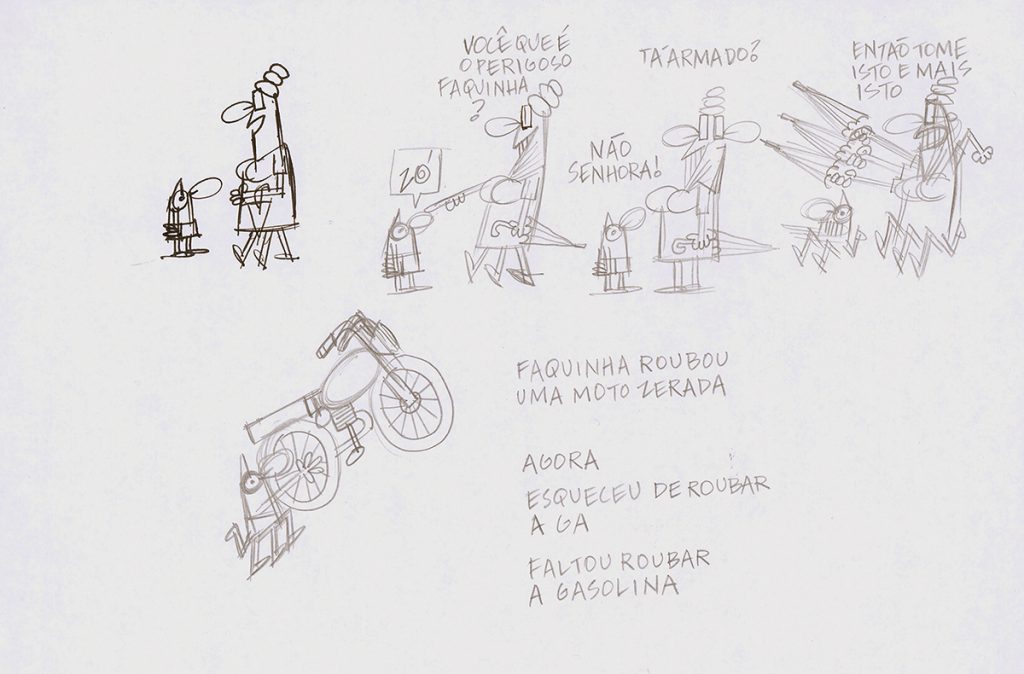 VOCÊ QUE É
O PERIGOSO
FAQUINHA
?
ZÓ!
TÁ ARMADO?
NÃO
SENHORA!
ENTÃO TOME
ISTO E MAIS
ISTO
FAQUINHA ROUBOU
UMA MOTO ZERADA
AGORA
ESQUECEU DE ROUBAR
A GA
FALTOU ROUBAR
A GASOLINA